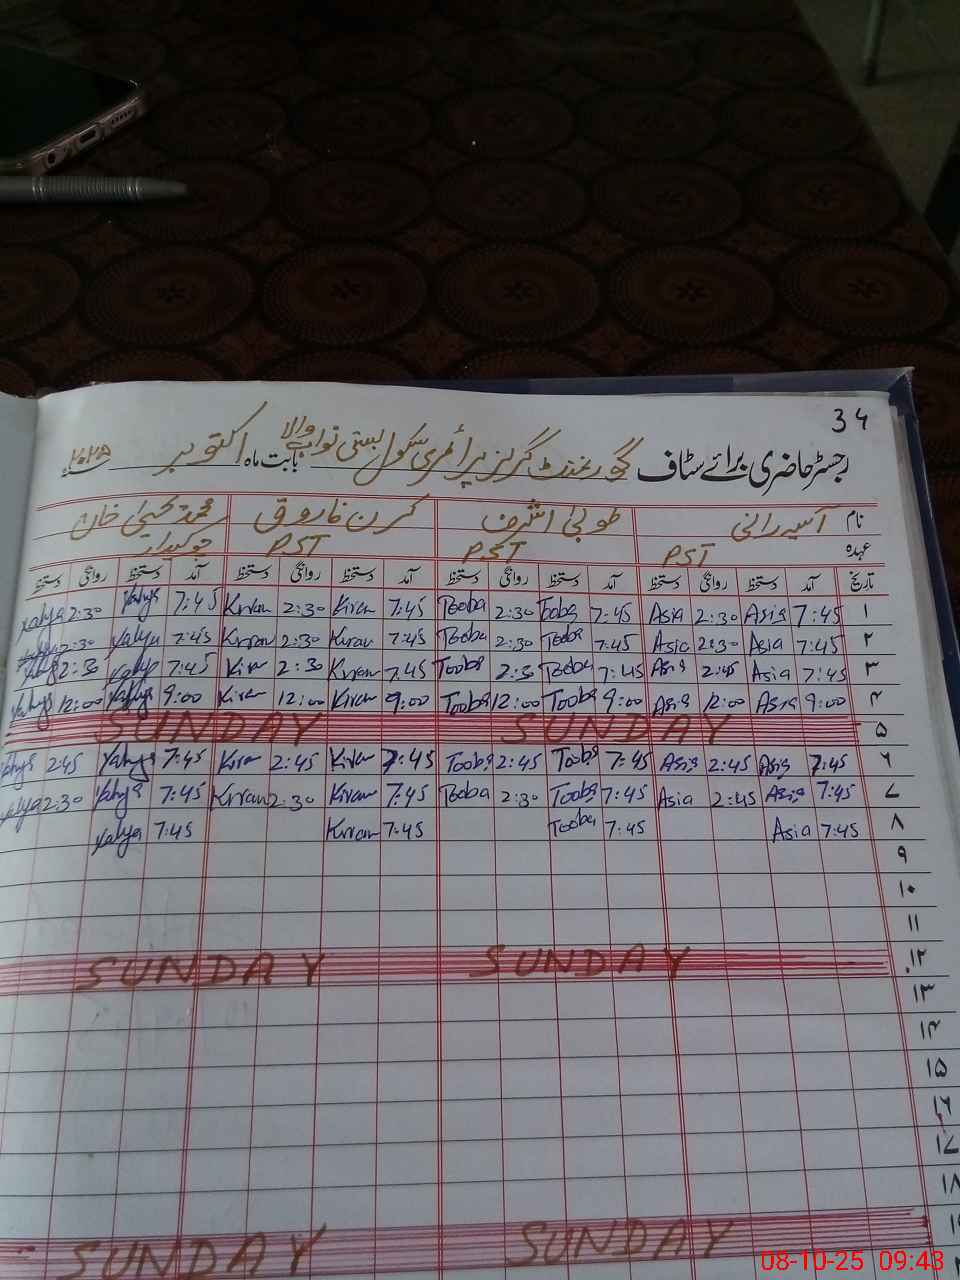 34
رجسٹر حاضری برائے سٹاف گورنمنٹ گرلز پرائمری سکول بستی نواب والا بابت ماہ اکتوبر ۲۰۲۵
نام آسیہ رانی طوبیٰ اشرف کرن فاروق محمد یحییٰ خان
عہدہ PST PST PST چوکیدار
تاریخ آمد دستخط روانگی دستخط آمد دستخط روانگی دستخط آمد دستخط روانگی دستخط آمد دستخط روانگی دستخط
۱ 7:45 Asia 2:30 Asia 7:45 Tooba 2:30 Tooba 7:45 Kiran 2:30 Kiran 7:45 Yahya 2:30 Yahya
۲ 7:45 Asia 2:30 Asia 7:45 Tooba 2:30 Tooba 7:45 Kiran 2:30 Kiran 7:45 Yahya 2:30 Yahya
۳ 7:45 Asia 2:45 Asia 7:45 Tooba 2:30 Tooba 7:45 Kiran 2:30 Kiran 7:45 Yahya 2:30 Yahya
۴ 9:00 Asia 12:00 Asia 9:00 Tooba 12:00 Tooba 9:00 Kiran 12:00 Kiran 9:00 Yahya 12:00 Yahya
۵ SUNDAY SUNDAY
۶ 7:45 Asia 2:45 Asia 7:45 Tooba 2:45 Tooba 7:45 Kiran 2:45 Kiran 7:45 Yahya 2:45 Yahya
۷ 7:45 Asia 2:45 Asia 7:45 Tooba 2:30 Tooba 7:45 Kiran 2:30 Kiran 7:45 Yahya 2:30 Yahya
۸ 7:45 Asia 7:45 Tooba 7:45 Kiran 7:45 Yahya
۹
۱۰
۱۱
۱۲ SUNDAY SUNDAY
۱۳
۱۴
۱۵
۱۶
۱۷
۱۸
SUNDAY SUNDAY
08-10-25 09:43